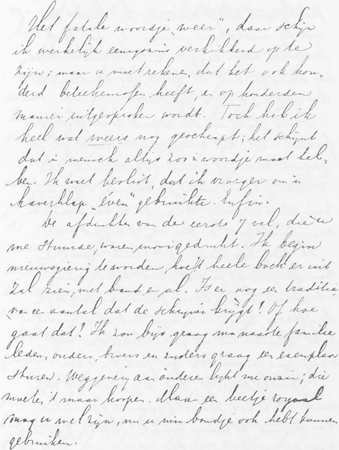 Het fatale woordje „weer", daar schijn
ik werkelijk eenigszins verkikkerd op te
zijn; maar u moet rekenen, dat het ook hon-
derd beteekenissen heeft, en op honderden
manier uitgesproken wordt. Toch heb ik
heel wat weers nog geschrapt; het schijnt
dat 'n mensch altijd zoo'n woordje moet heb-
ben. Ik weet beslist, dat ik vroeger om 'n
haverklap „even" gebruikte. Enfin.
De afdrukken van de eerste 7 vel, die u
me stuurde, waren mooi gedrukt. Ik begin
nieuwsgierig te worden, hoe 't heele boek er uit
zal zien, met band en al. Is er nog een traditie
van een aantal dat de schrijver krijgt? Of hoe
gaat dat? Ik zou bijv. graag m'n naaste familie
leden, ouders, broers en zusters graag een exemplaar
sturen. Weggeven aan anderen lijkt me onzin; die
moeten 't maar koopen. Maar een beetje royaal
mag u wel zijn, nu u m'n bondje ook hebt kunnen
gebruiken.